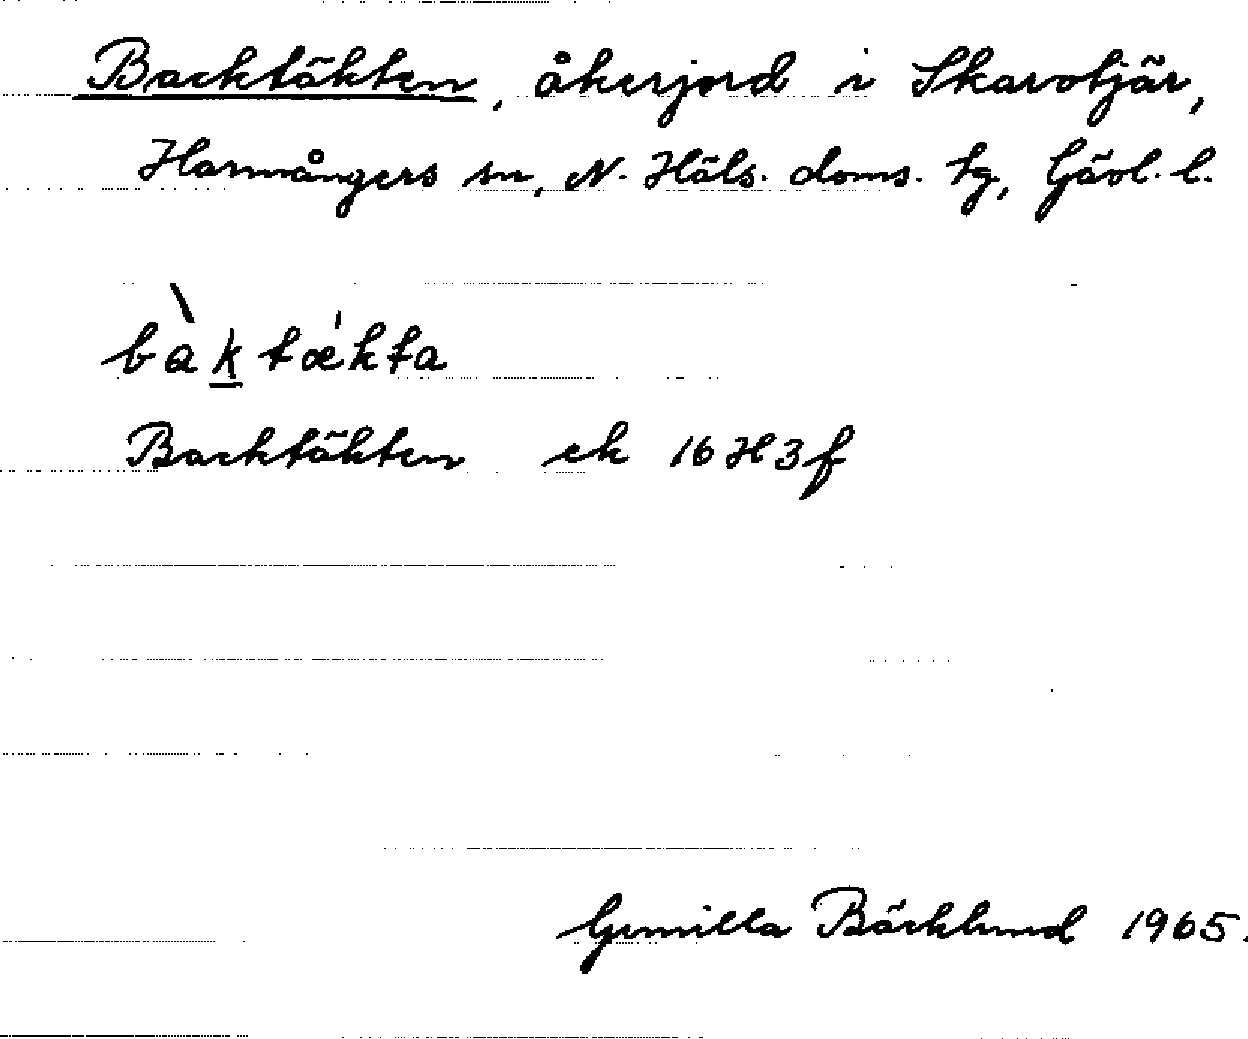 Backtäkten, åkerjord i Skarvtjär,
Harmångers sn, N. Häls. doms. tg, Gävl. l.
bàktæ'kta
Backtäkten ek 16H3f
Gunilla Bäcklund 1965.